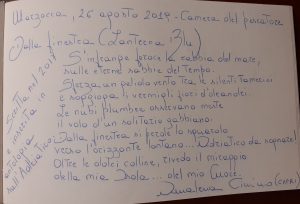 Marzocca, 26 agosto 2019 - Camera del pescatore
Dalla finestra (Lanterna Blu)
S'infrange feroce la rabbia del mare,
sulle eterne sabbie del tempo.
Sferza un gelido vento tra le silenti tamerici
e soggioga i vermigli fiori d'oleandri.
Le nubi plumbee osservano mute
il volo d'un solitario gabbiano.
Dalla finestra si perde lo sguardo
verso l'orizzonte lontano... Adriatico da sognare!
Oltre le dolci colline, rivedo il miraggio
della mia Isola... del mio Cuore.
Cimino
Scritta nel 2017
e inserita in
antologia
sull'Adriatico